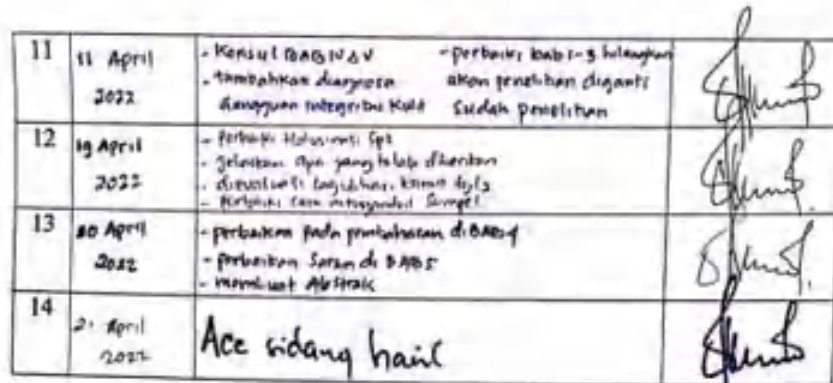 11 11 April 2022
- Konsul BAB IV & V
- tambahkan diagnosa
gangguan integritas kulit
- perbaiki bab 1-3 hilangkan
akan penelitian diganti
sudah penelitian
12 19 April 2022
- Perbaiki
- jelaskan apa yang telah diberikan
- dievaluasi
- Perbaiki cara mengambil Sampel
13 20 April 2022
- perbaikan pada pembahasan di BAB 4
- perbaikan Saran di BAB 5
- membuat Abstrak
14 21 April 2022
Acc sidang hasil